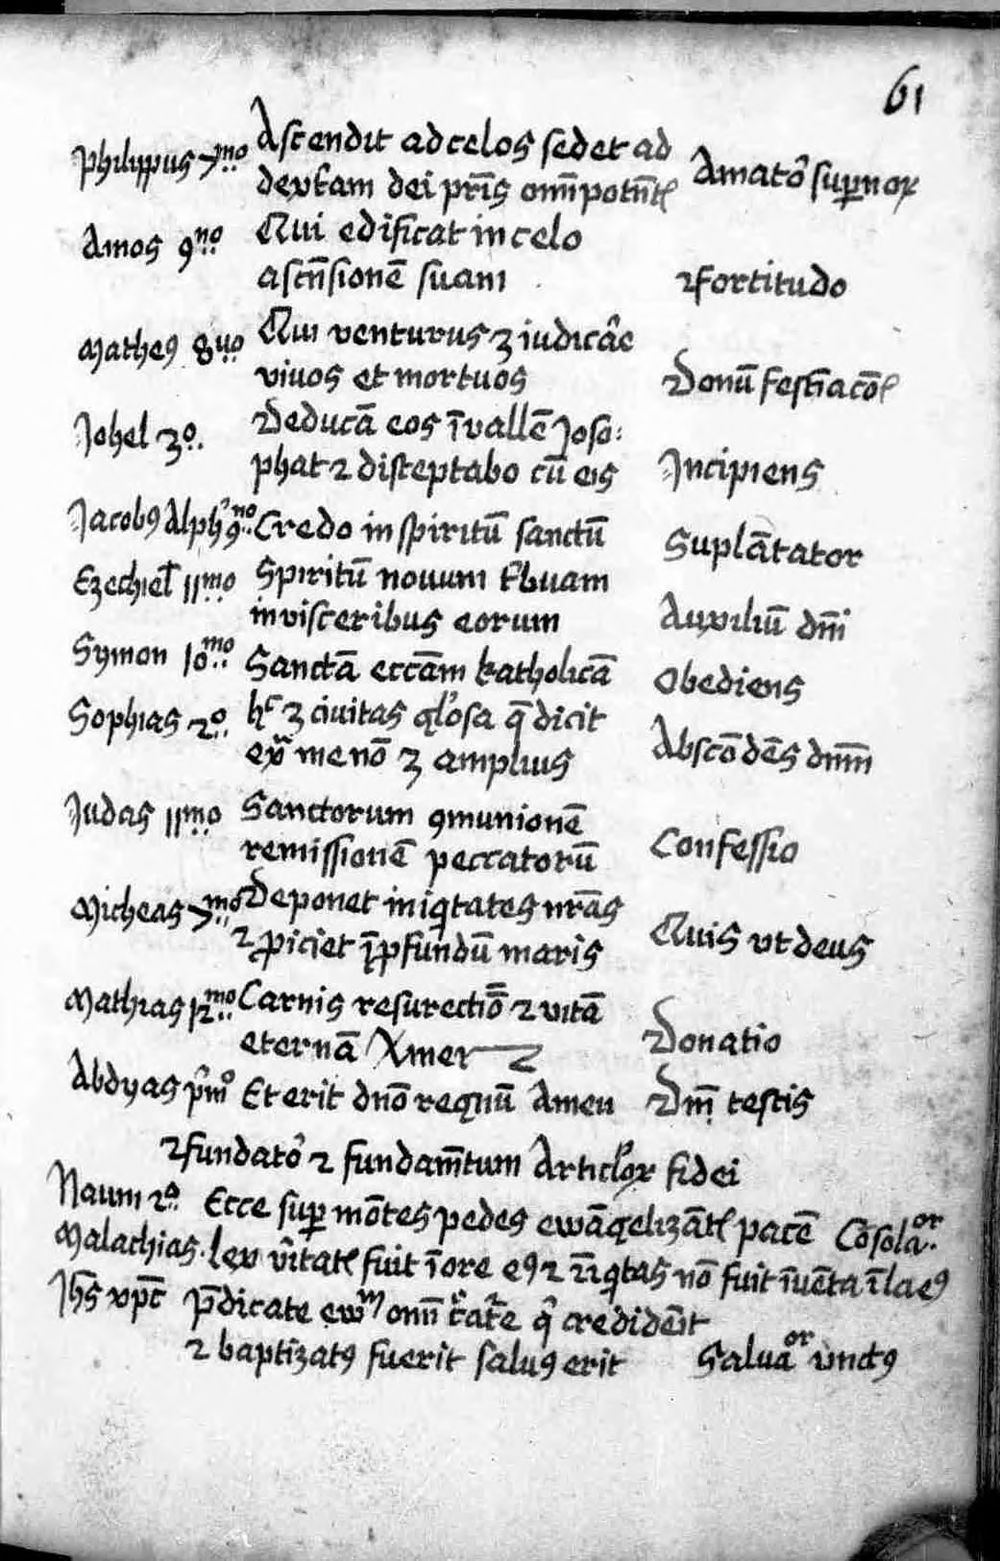 61
Philippus 7mo Ascendit ad celos sedet ad
dext͛am dei pr̄is om̄ipotn̄t Amato᷑ suꝑnoꝝ
Amos 9no Qui edificat in celo
ascn̄sionē suam Fortitudo
Matheꝰ 8uo Qui venturus ʒ iudicāe
viuos et mortuos Donū festīacōꝭ
Johel 3o. Deducā eos ī vallē Josa:
phat ⁊ disceptabo cū eis Incipiens
Jacobꝰ Alph̓ 9no Credo in spiritū sanctū Suplātator
Ezechiel 11mo Spiritū nouum t͛buam
in visceribus eorum Auxiliū dm̄i
Symon 10mo Sanctā eccām katholicā Obediens
Sophias 2o. hc ʒ ciuitas gl̓osa q̄ dicit
exͣ me nō ʒ amplius Abscōdēs dnm̄
Judas 11mo Sanctorum ꝯmunionē
remissionē peccatorū Confessio
Micheas 7mo Deponet iniqtates nr̄as
⁊ ꝓiciet ī ꝓfundū maris Quis vt deus
Mathias 12mo Carnis resurectiō ⁊ vitā
eternā Amen Donatio
Abdyas p̄mo Et erit dnō regnū Amen Dnī testis
Fundato᷑ ⁊ fundam̄tum Articl̓oꝝ fidei
Naum 2o Ecce suꝑ mōtes pedes ewāgelizātꝭ pacē Cōsolaor.
Malachias. lex v̄itatꝭ fuit ī ore eꝰ ⁊ īiqtas nō fuit īuēta ī laeꝰ
Jhs̄ xpc̄ p̄dicate ewm om̄i c͛at͛e q̓ credidēit
⁊ baptizatꝰ fuerit saluꝰ erit Saluaor vnctꝰ